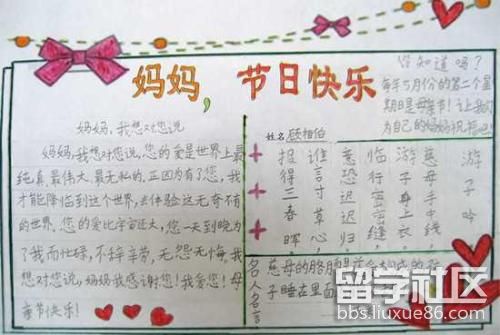 妈妈，节日快乐
你知道吗？
每年5月份的第二个星
期日是母亲节！让我们
为自己的妈妈祝福吧！
妈妈，我想对您说
妈妈，我想对您说，您的爱是世界上最
纯真、最伟大、最无私的．正因为有了您，我
才能降临到这个世界，去体验这无奇不有
的世界．您的爱比宇宙还大，您一天到晚为
了我而忙碌，不辞辛劳、无怨无悔，我
想对您说，妈妈我感谢您！我爱您！母
亲节快乐！
姓名
游子吟
慈母手中线
游子身上衣
临行密密缝
意恐迟迟归
谁言寸草心
报得三春晖
名人名言
慈母的胳膊是
子睡在里面
留学社区
bbs.liuxue86.com